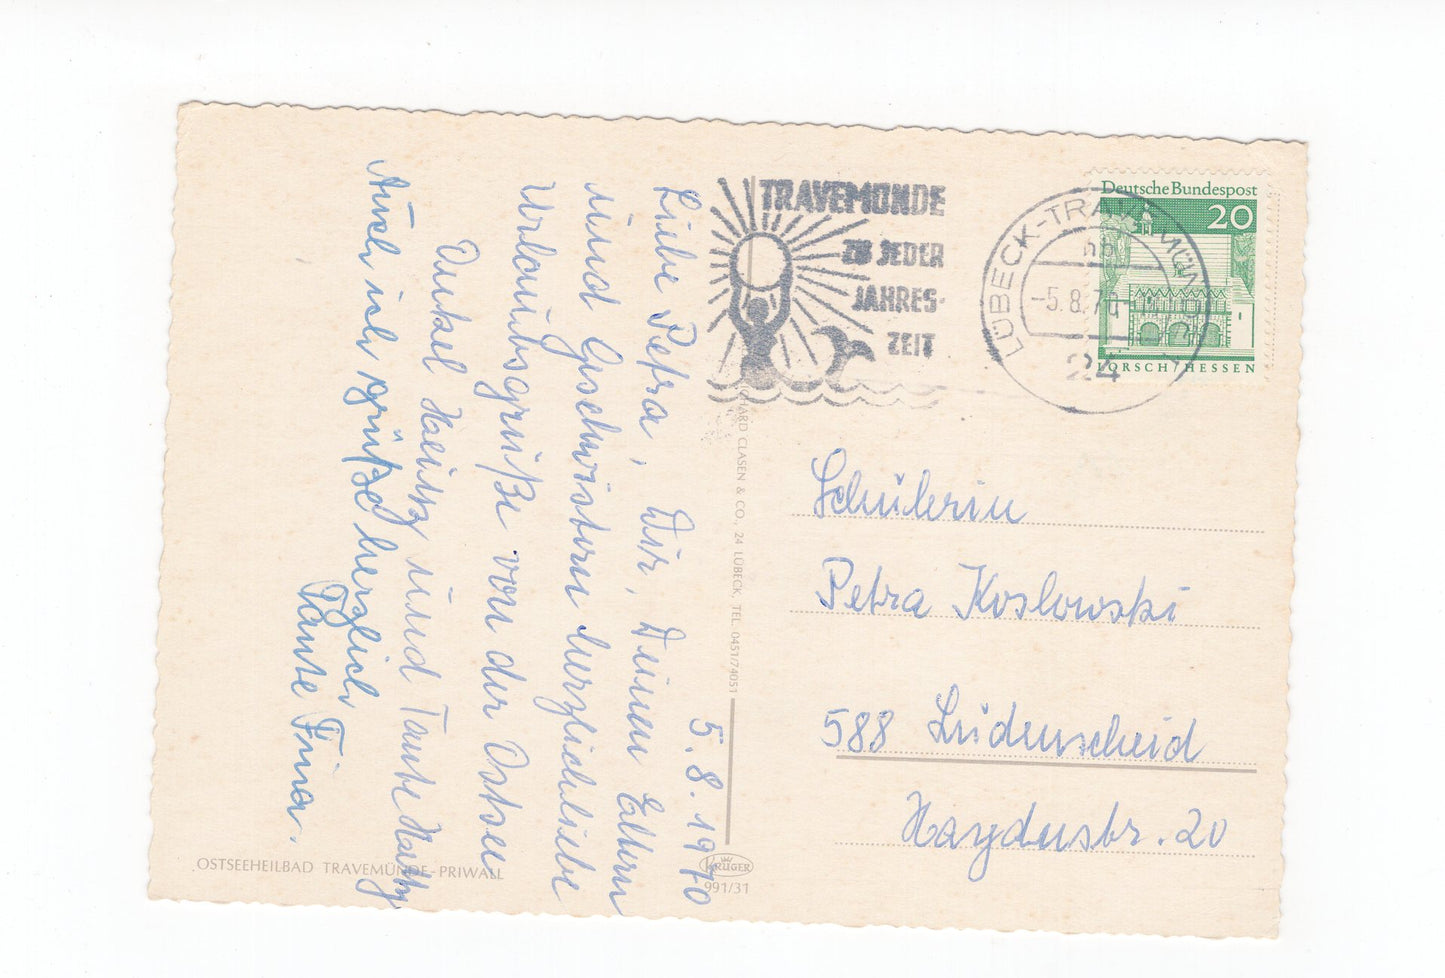 5.8.1970
Liebe Petra, Dir, Deinen Eltern
und Geschwistern herzlichliche
Urlaubsgrüße von der Ostsee
Onkel Heinz und Tante Kätty
Auch ich grüße herzlich
Tante Fina.
OSTSEEHEILBAD TRAVEMÜNDE-PRIWALL
CHARD CLASEN & CO., 24 LÜBECK, TEL. 0451/74051
KRÜGER
991/31
TRAVEMÜNDE
ZU JEDER
JAHRES-
ZEIT
LÜBECK-TRAVEMÜNDE 1
hb
-5.8.70
24
Deutsche Bundespost
20
LORSCH/HESSEN
Schülerin
Petra Koslowski
588 Lüdenscheid
Haydnstr. 20